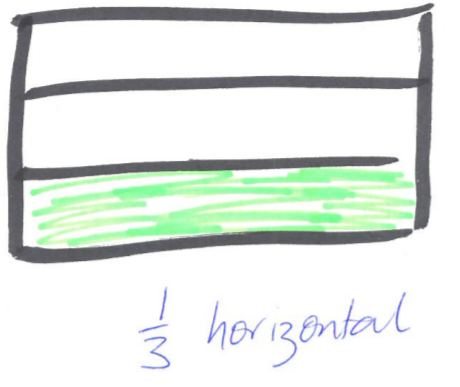 1/3 horizontal